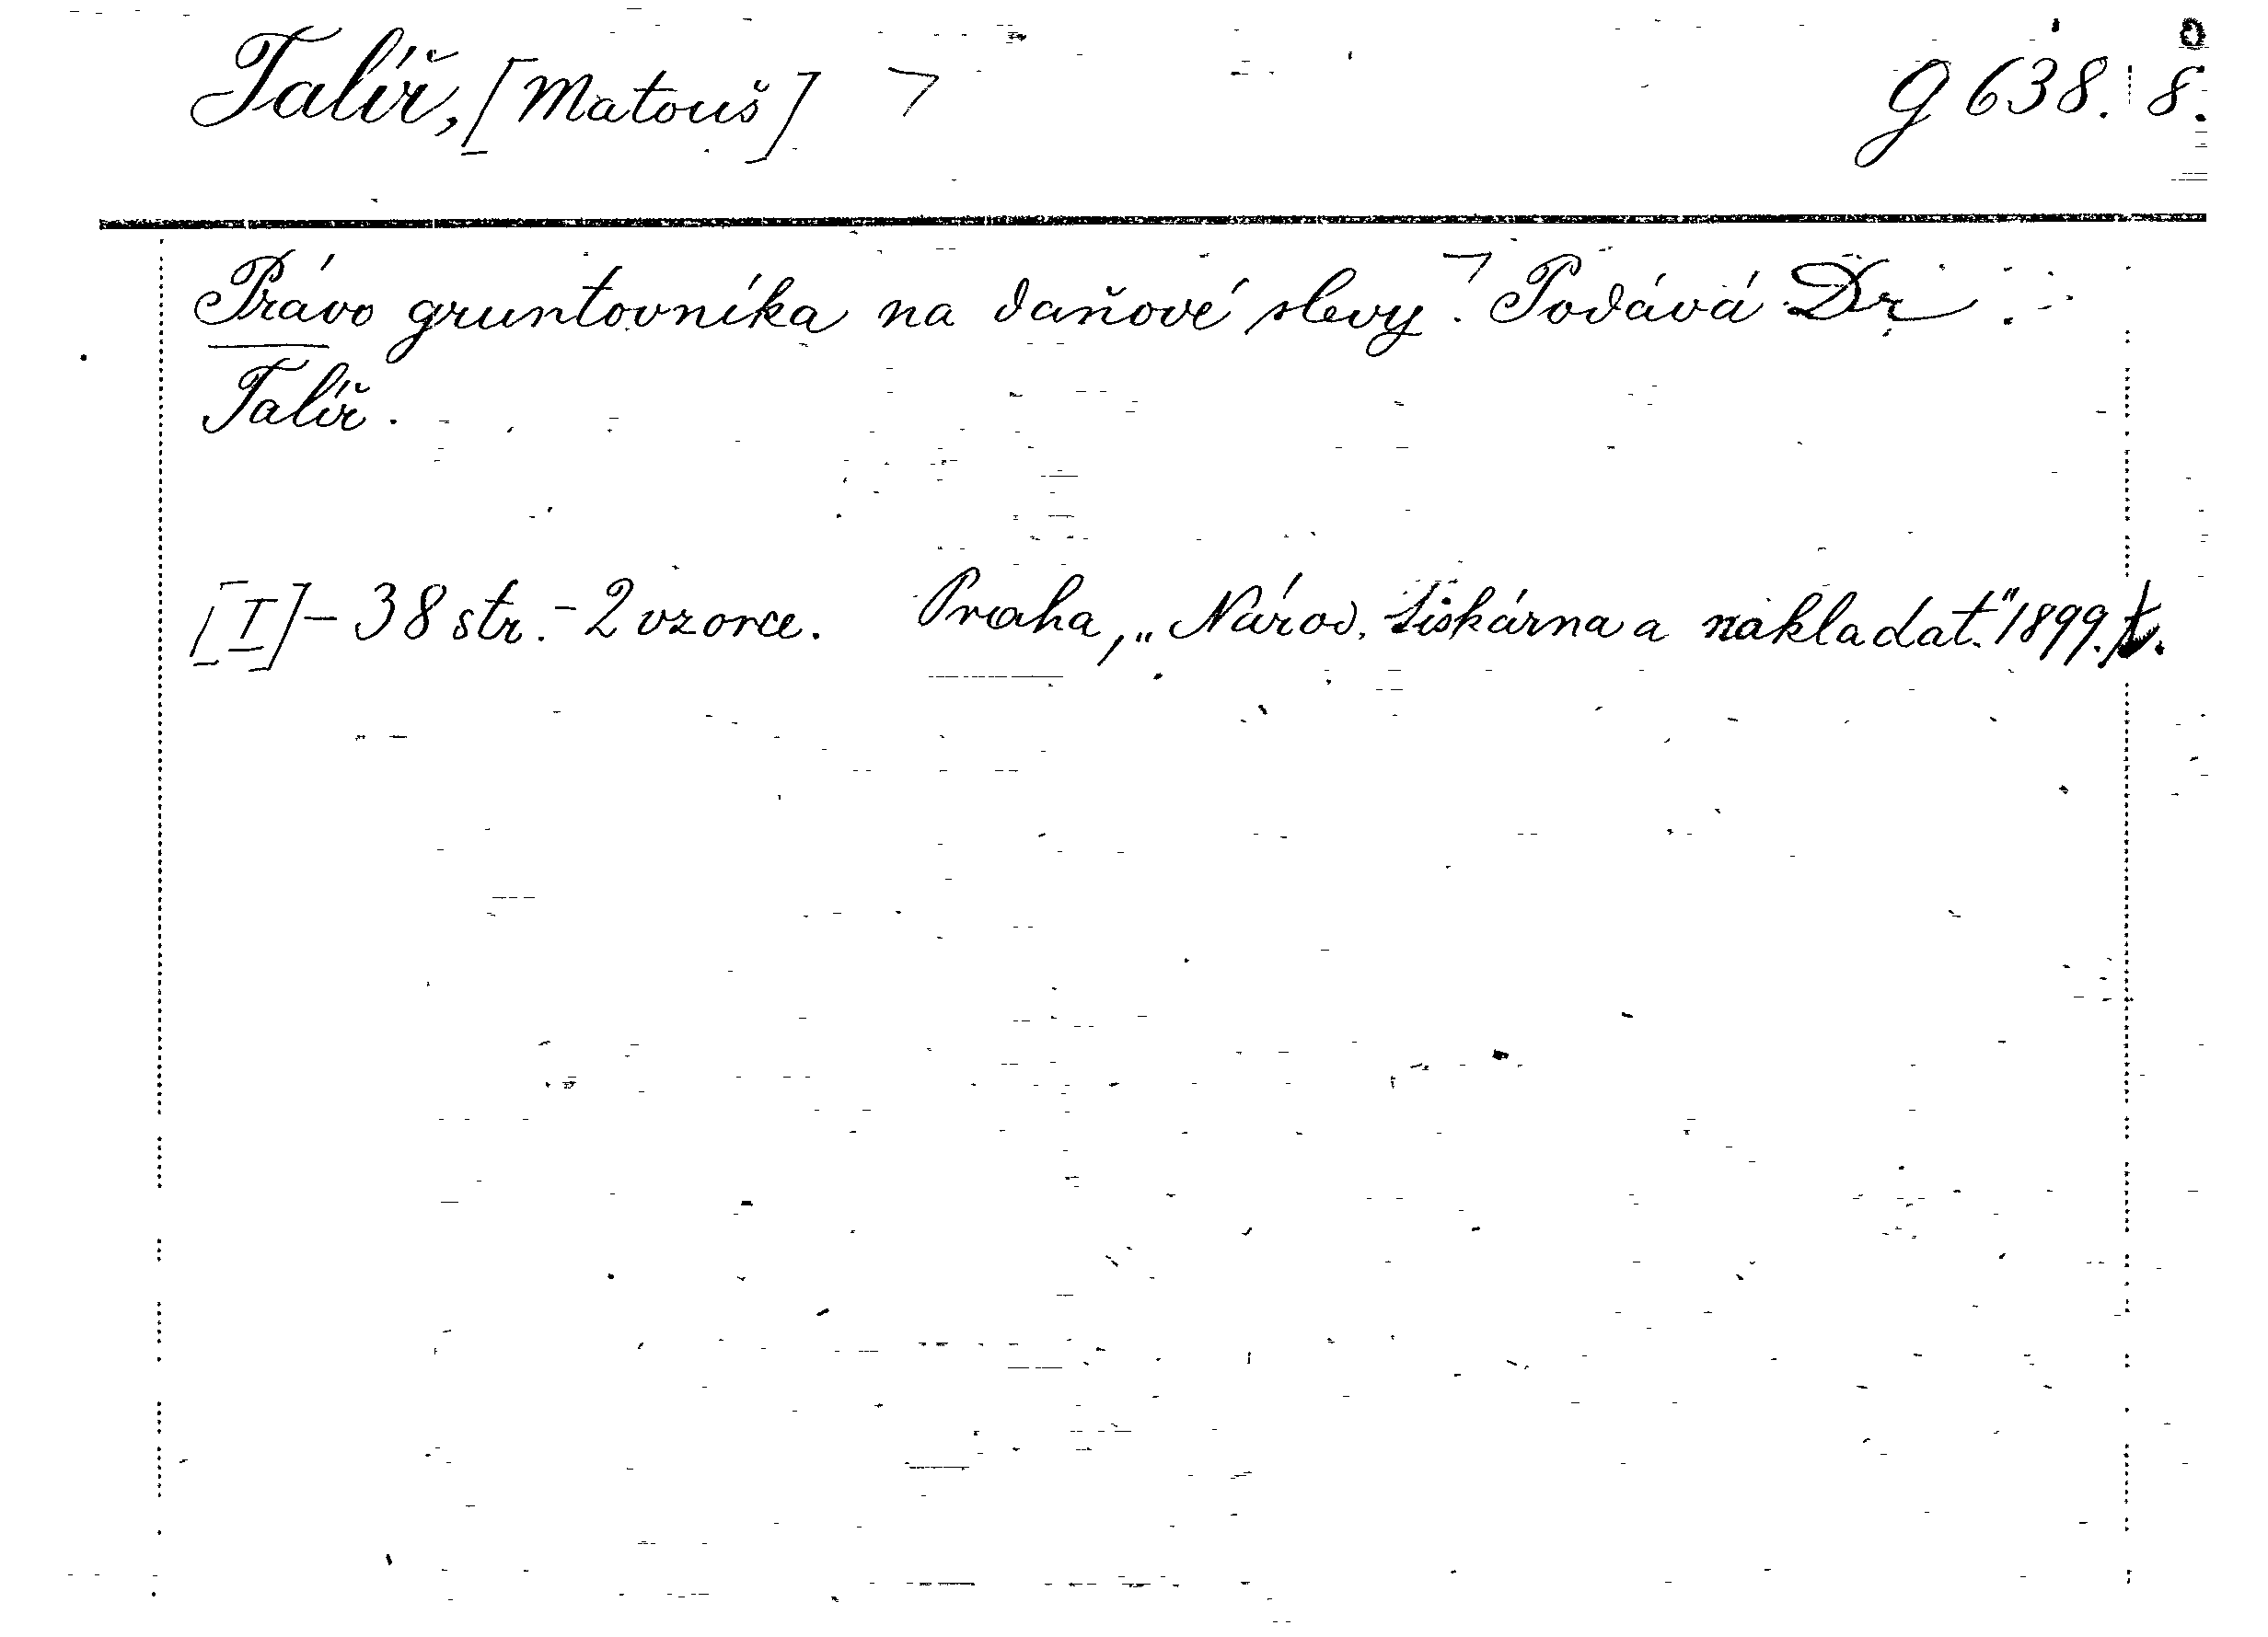 Talíř, [Matouš] ⏋ g 638. 8.
Právo gruntovníka na daňové slevy.⏋ Podává Dr
Talíř.
[I] – 38 str. – 2 vzorce. Praha, „Národ. tiskárna a nakladat." 1899. t.